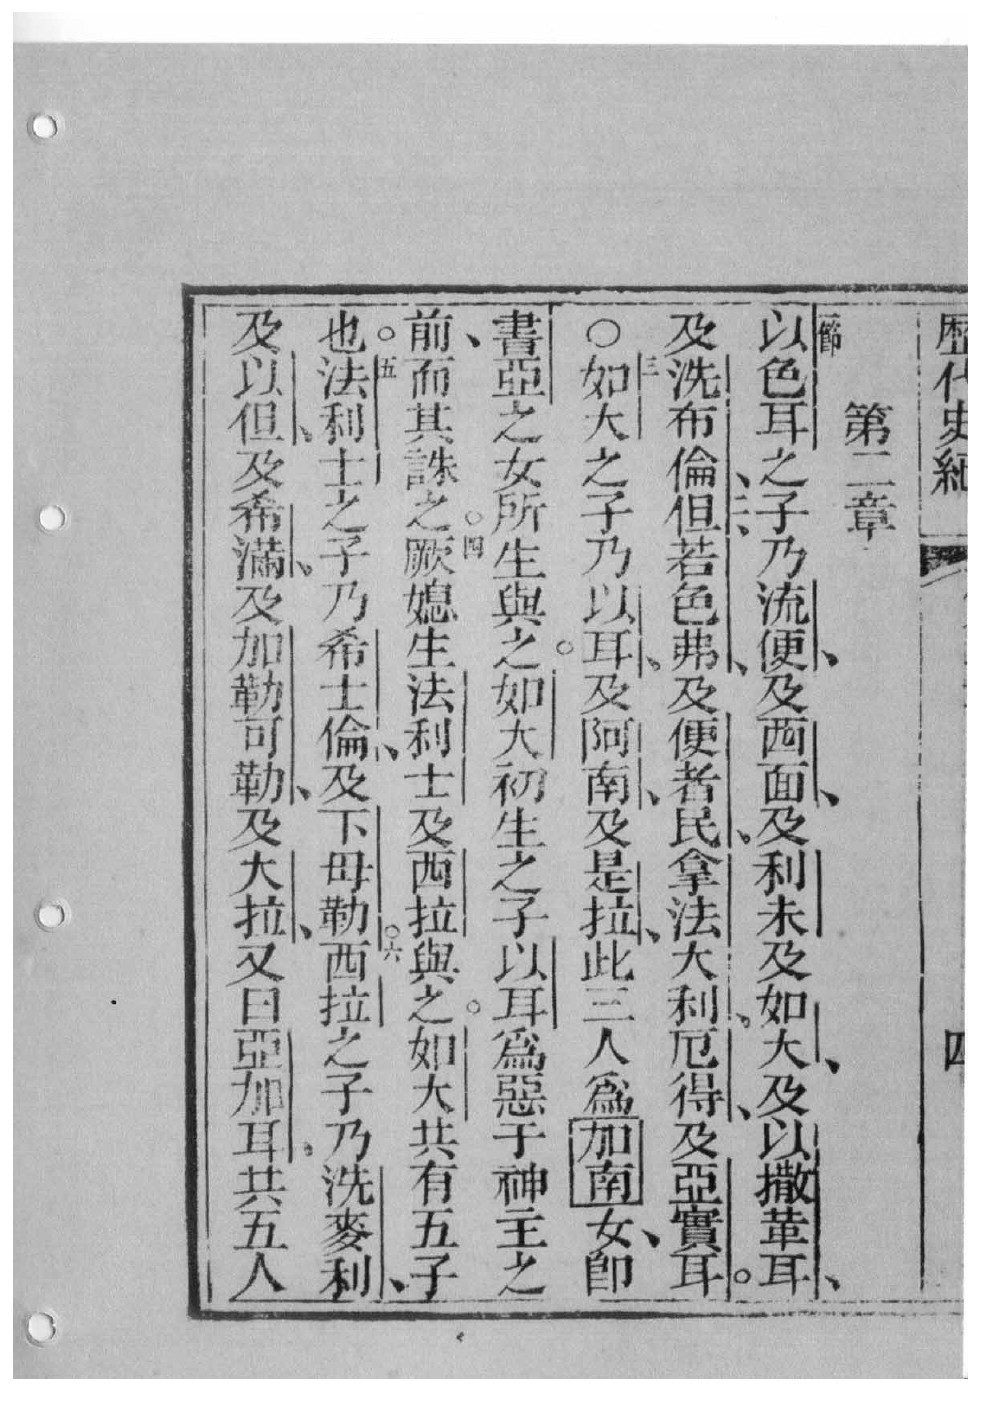 歷代史紀 四
第二章
一節以色耳之子乃流便、及西面、及利未及如大、及以撒革耳、
及洗布倫、二但、若色弗、及便者民、拿法大利、厄得、及亞實耳。
○三如大之子乃以耳、及阿南、及是拉、此三人爲加南女、卽
書亞之女所生與之。如大初生之子以耳爲惡于神主之
前、而其誅之。四厥媳生法利士及西拉與之。如大共有五子
也。五法利士之子乃希士倫、及下母勒。六西拉之子乃洗麥利、
及以但、及希滿、及加勒可勒、及大拉、又曰亞加耳、共五人